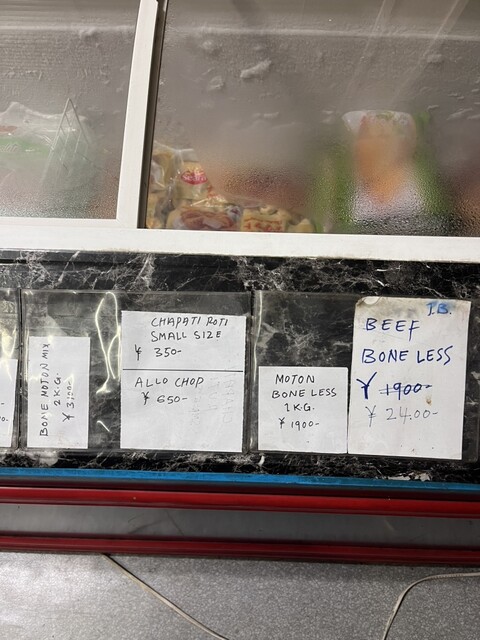 BONE MOTON MIX
2 K.G.
¥ 3,100-
CHAPATI ROTI
SMALL SIZE
¥ 350-
ALLO CHOP
¥ 650-
MOTON
BONE LESS
1 K.G.
¥ 1900-
I.B.
BEEF
BONE LESS
¥ 1900-
¥ 24.00-